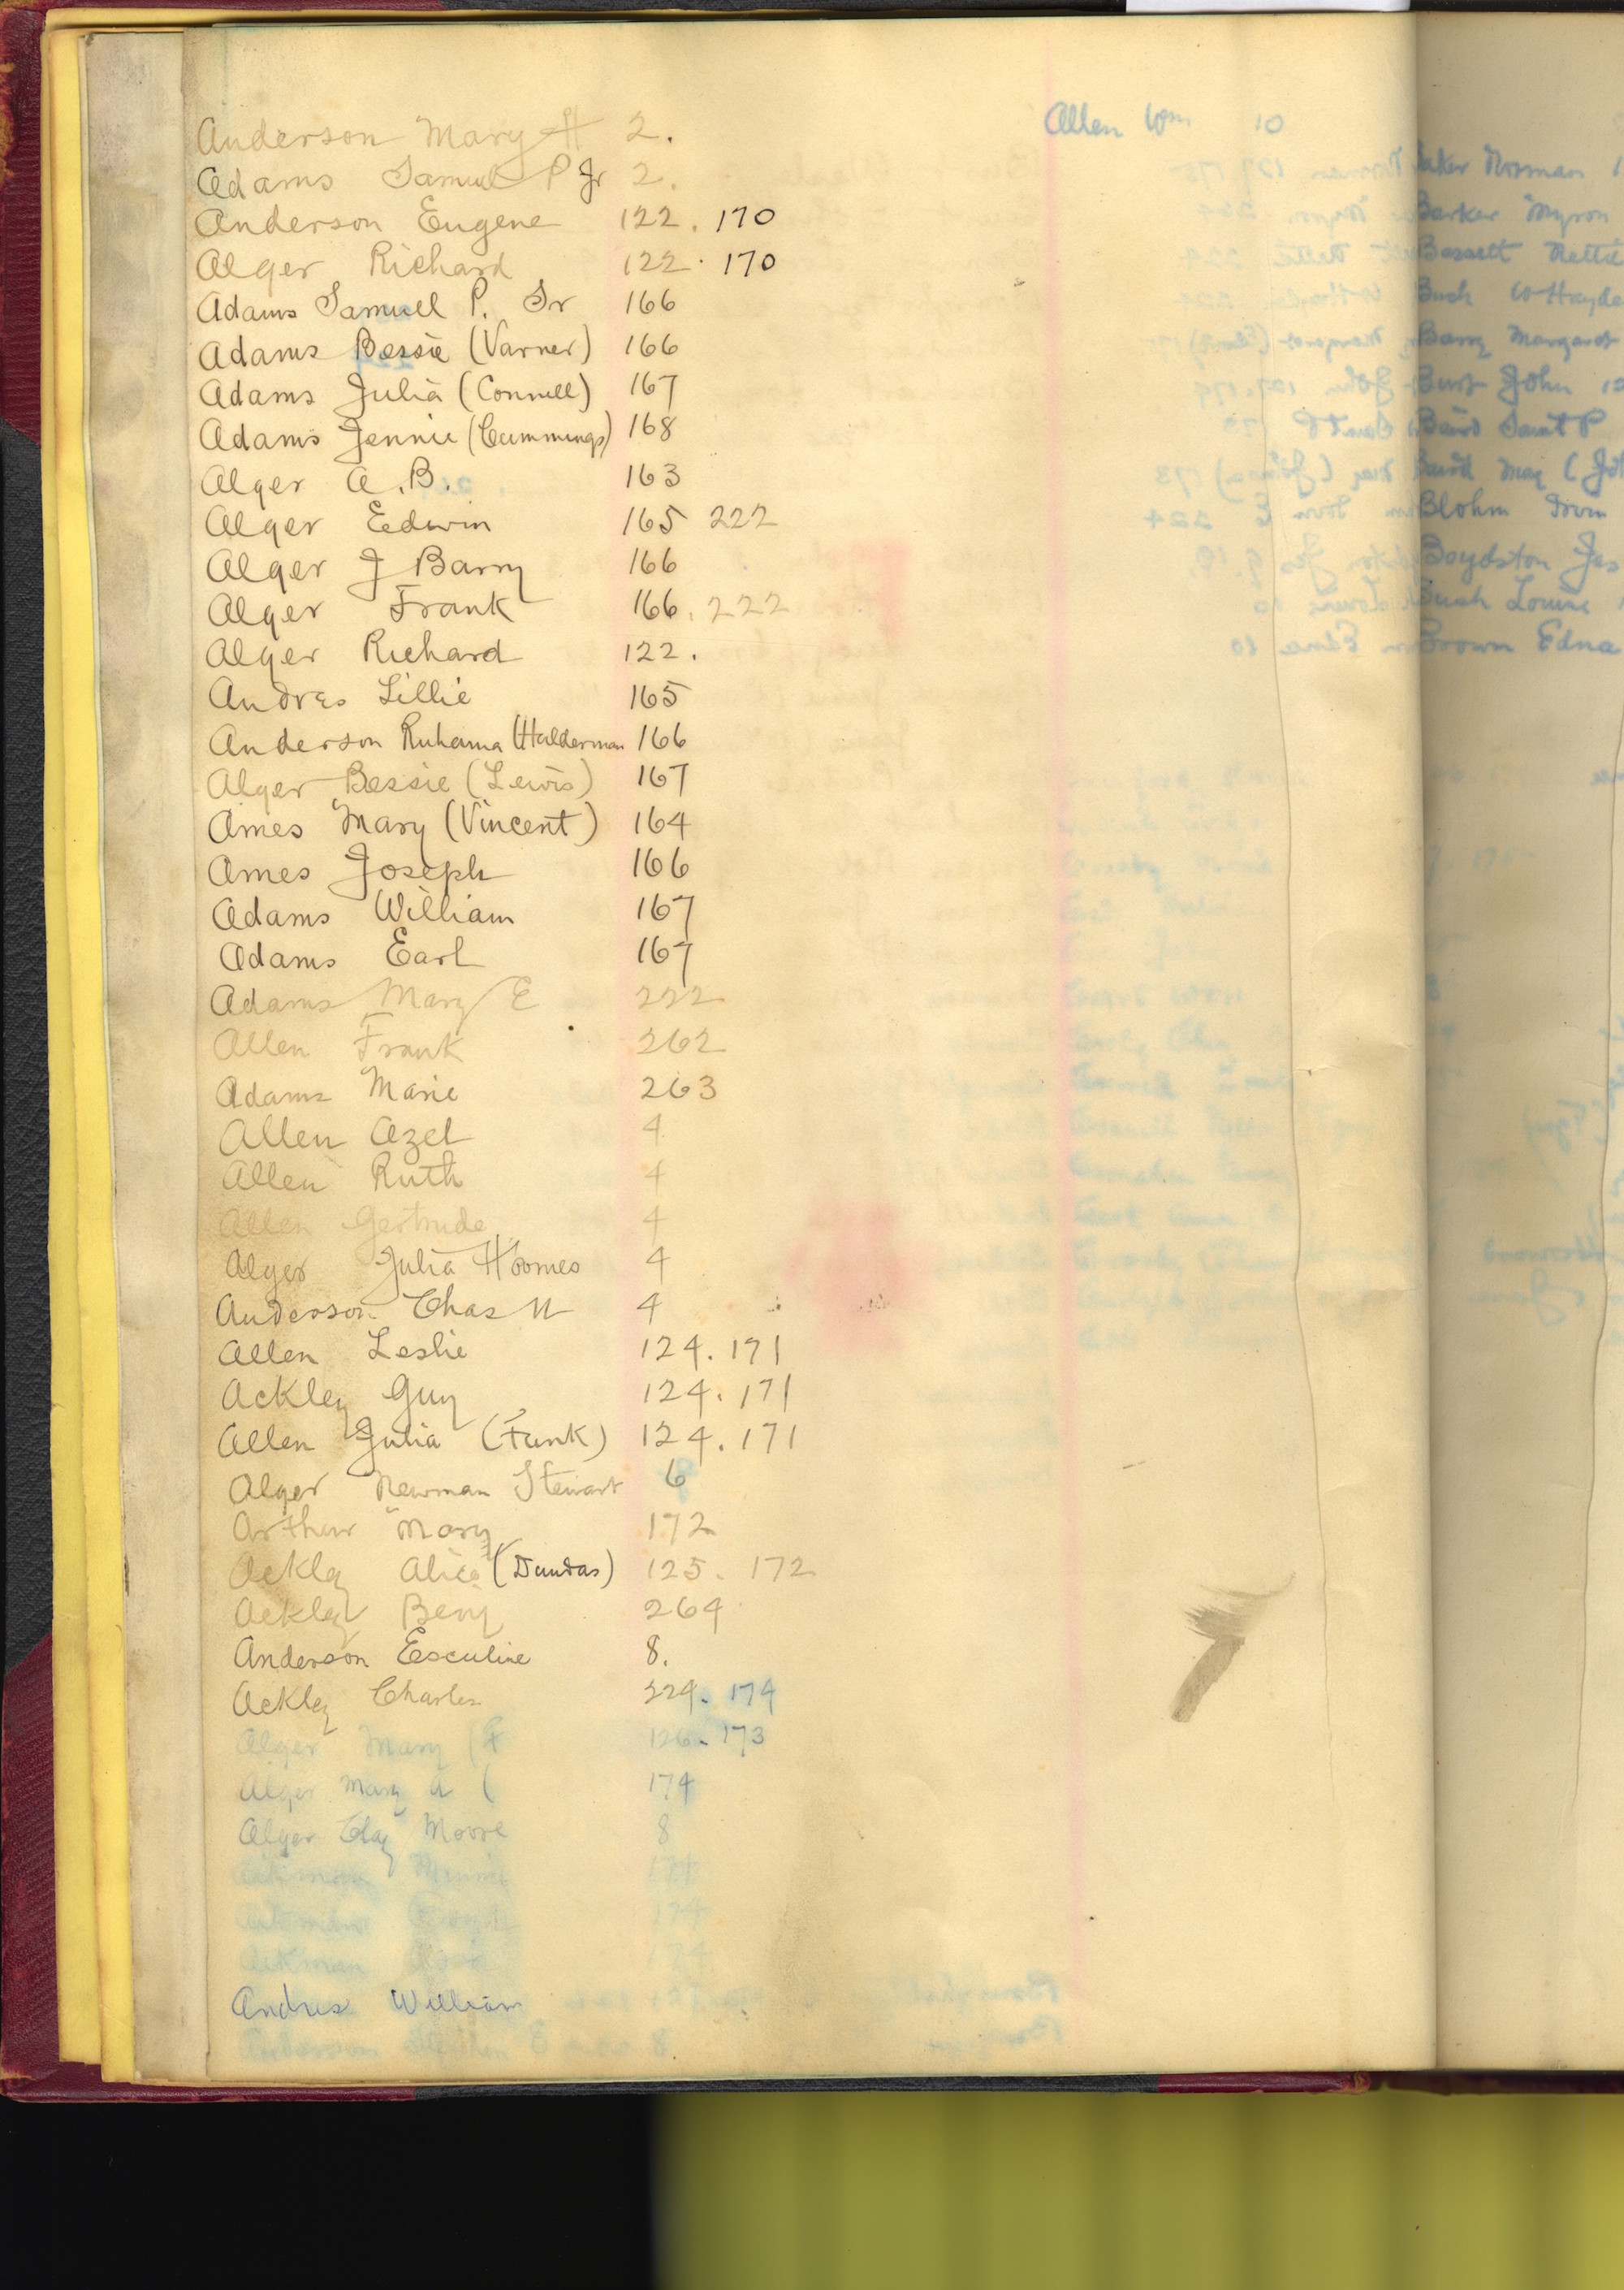 Anderson Mary H 2.
Adams Samuel P Jr 2.
Anderson Eugene 122. 170
Alger Richard 122. 170
Adams Samuel P. Sr 166
Adams Bessie (Varner) 166
Adams Julia (Connell) 167
Adams Jennie (Cummings) 168
Alger A.B. 163
Alger Edwin 165 222
Alger J Barry 166
Alger Frank 166. 222
Alger Richard 122.
Andres Lillie 165
Anderson Ruhama (Halderman 166
Alger Bessie (Lewis) 167
Ames Mary (Vincent) 164
Ames Joseph 166
Adams William 167
Adams Earl 167
Adams Mary E 222
Allen Frank 262
Adams Marie 263
Allen Azel 4
Allen Ruth 4
Allen Gertrude 4
Alger Julia Hoomes 4
Anderson Chas N 4
Allen Leslie 124. 171
Ackley Guy 124. 171
Allen Julia (Funk) 124. 171
Alger Newman Stewart 6
Arthur Mary 172
Ackley Alice (Dundas) 125. 172
Ackley Benj 264
Anderson Esculine 8.
Ackley Charles 224. 174
Alger Mary (F 126. 173
Alger Mary A ( 174
Alger Clay Moore 8
174
174
Aikman 174
Andrus William
Anderson 8
Allen Wm 10
Norman
Barker Myron
Bassett Retta
Bush W Hayde
Barry Margaret
Burt John 12
Baird Saml P
Baird May (Joh
Blohm Irvin
Boydston Jes
Bush Louise
Brown Edna